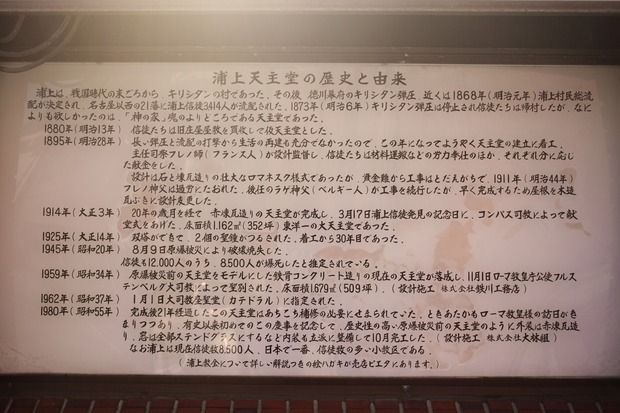 浦上天主堂の歴史と由来
浦上は、戦国時代の末ごろから、キリシタンの村であった。その後、徳川幕府のキリシタン弾圧、近くは1868年(明治元年)浦上村民総流
配が決定され、名古屋以西の21藩に浦上信徒3414人が流配された。1873年(明治6年)キリシタン弾圧は停止され信徒たちは帰村したが、なに
よりも欲しかったのは、「神の家」魂のよりどころである天主堂であった。
1880年(明治13年) 信徒たちは旧庄屋屋敷を買収して仮天主堂とした。
1895年(明治28年) 長い弾圧と流配の打撃から生活の再建も充分でなかったので、この年になってようやく天主堂の建立に着工、
主任司祭フレノ師(フランス人)が設計監督し、信徒たちは材料運搬などの労力奉仕のほか、それぞれ分に応じ
た献金をした。
設計は石と煉瓦造りの壮大なロマネスク様式であったが、資金難から工事はとだえがちで、1911年(明治44年)
フレノ神父は過労にたおれ、後任のラゲ神父(ベルギー人)が工事を続行したが、早く完成するため屋根を木造
瓦ぶきに設計変更した。
1914年(大正3年) 20年の歳月を経て 赤煉瓦造りの天主堂が完成し、3月17日浦上信徒発見の記念日に、コンパス司教によって献
堂式をあげた。床面積1.162㎡(352坪)東洋一の大天主堂であった。
1925年(大正14年) 双塔ができて、2個の聖鐘がつるされた。着工から30年目であった。
1945年(昭和20年) 8月9日原爆被災により破壊焼失した。
信徒も12,000人のうち 8,500人が爆死したと推定されている。
1959年(昭和34年) 原爆被災前の天主堂をモデルにした鉄骨コンクリート造りの現在の天主堂が落成し、11月1日ローマ教皇庁公使フルス
テンベルク大司教によって聖別された。床面積1.679㎡(509坪)。(設計施工 株式会社鉄川工務店)
1962年(昭和37年) 1月1日大司教座聖堂(カテドラル)に指定された。
1980年(昭和55年) 完成後21年経過したこの天主堂はあちこち補修の必要にせまられていた、ときあたかもローマ教皇様の訪日がき
まりつつあり、有史以来初めてのこの慶事を記念して、歴史性の高い原爆被災前の天主堂のように外装は赤煉瓦造
り、窓は全部ステンドグラスにするなど内装も立派に整備して10月完工した。(設計施工 株式会社大林組)
なお浦上は現在信徒数8,500人、日本で一番、信徒数の多い小教区である。
(浦上教会について詳しい解説つきの絵ハガキが売店ピエタにあります。)